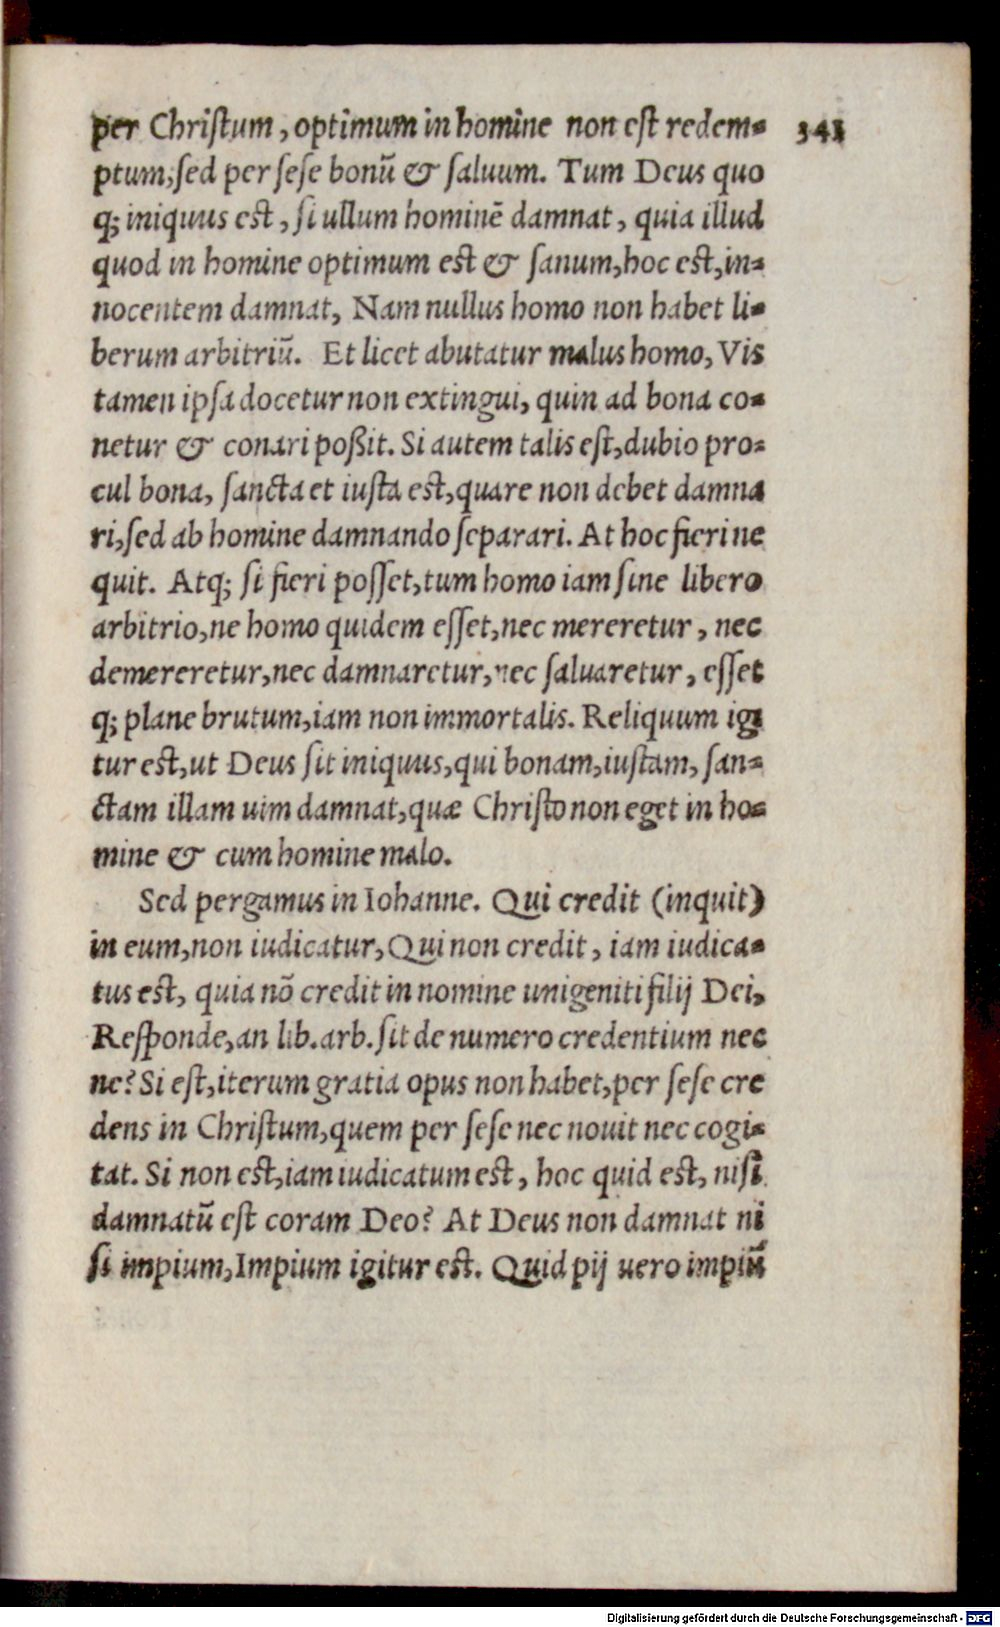 per Chriſtum, optimum in homine non eſt redem- 343
ptum, ſed per ſeſe bonũ & ſaluum. Tum Deus quo
q; iniquus eſt, ſi ullum hominẽ damnat, quia illud
quod in homine optimum eſt & ſanum, hoc eſt, in-
nocentem damnat, Nam nullus homo non habet li-
berum arbitriũ. Et licet abutatur malus homo, Vis
tamen ipſa docetur non extingui, quin ad bona co-
netur & conari poßit. Si autem talis eſt, dubio pro-
cul bona, ſancta et iuſta eſt, quare non debet damna
ri, ſed ab homine damnando ſeparari. At hoc fieri ne
quit. Atq; ſi fieri poſſet, tum homo iam ſine libero
arbitrio, ne homo quidem eſſet, nec mereretur, nec
demereretur, nec damnaretur, nec ſaluaretur, eſſet
q; plane brutum, iam non immortalis. Reliquum igi
tur eſt, ut Deus ſit iniquus, qui bonam, iuſtam, ſan-
ctam illam uim damnat, quæ Chriſto non eget in ho-
mine & cum homine malo.
Sed pergamus in Iohanne. Qui credit (inquit)
in eum, non iudicatur, Qui non credit, iam iudica-
tus eſt, quia nõ credit in nomine unigeniti filij Dei,
Reſponde, an lib. arb. ſit de numero credentium nec
ne? Si eſt, iterum gratia opus non habet, per ſeſe cre
dens in Chriſtum, quem per ſeſe nec nouit nec cogi-
tat. Si non eſt, iam iudicatum eſt, hoc quid eſt, niſi
damnatũ eſt coram Deo? At Deus non damnat ni
ſi impium, Impium igitur eſt. Quid pij uero impiũ
Digitalisierung gefördert durch die Deutsche Forschungsgemeinschaft - DFG